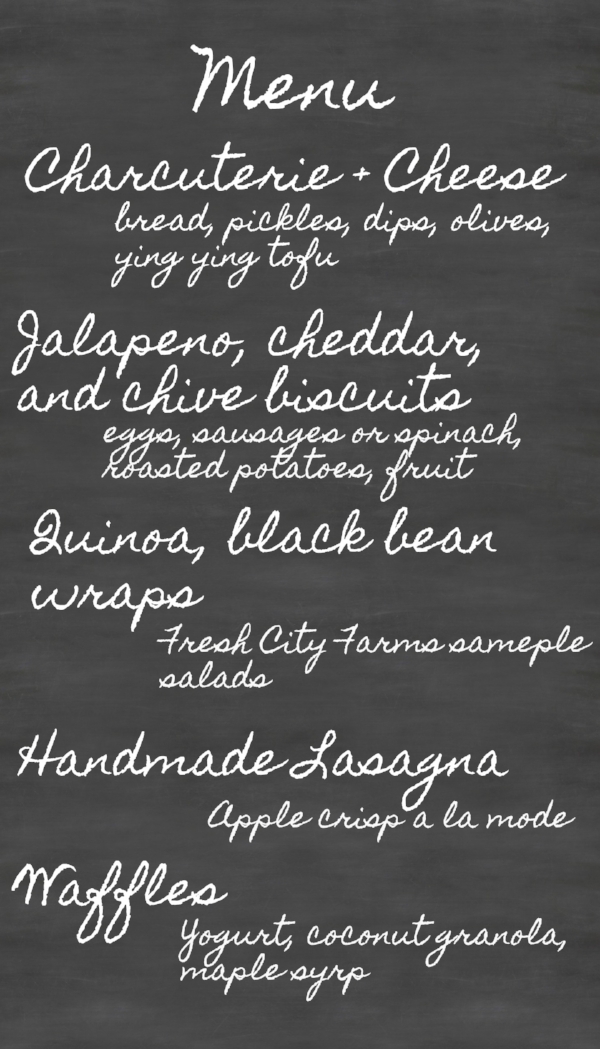 Menu
Charcuterie + Cheese
bread, pickles, dips, olives,
ying ying tofu
Jalapeno, cheddar,
and chive biscuits
eggs, sausages or spinach,
roasted potatoes, fruit
Quinoa, black bean
wraps
Fresh City Farms sameple
salads
Handmade Lasagna
Apple crisp a la mode
Waffles
Yogurt, coconut granola,
maple syrp